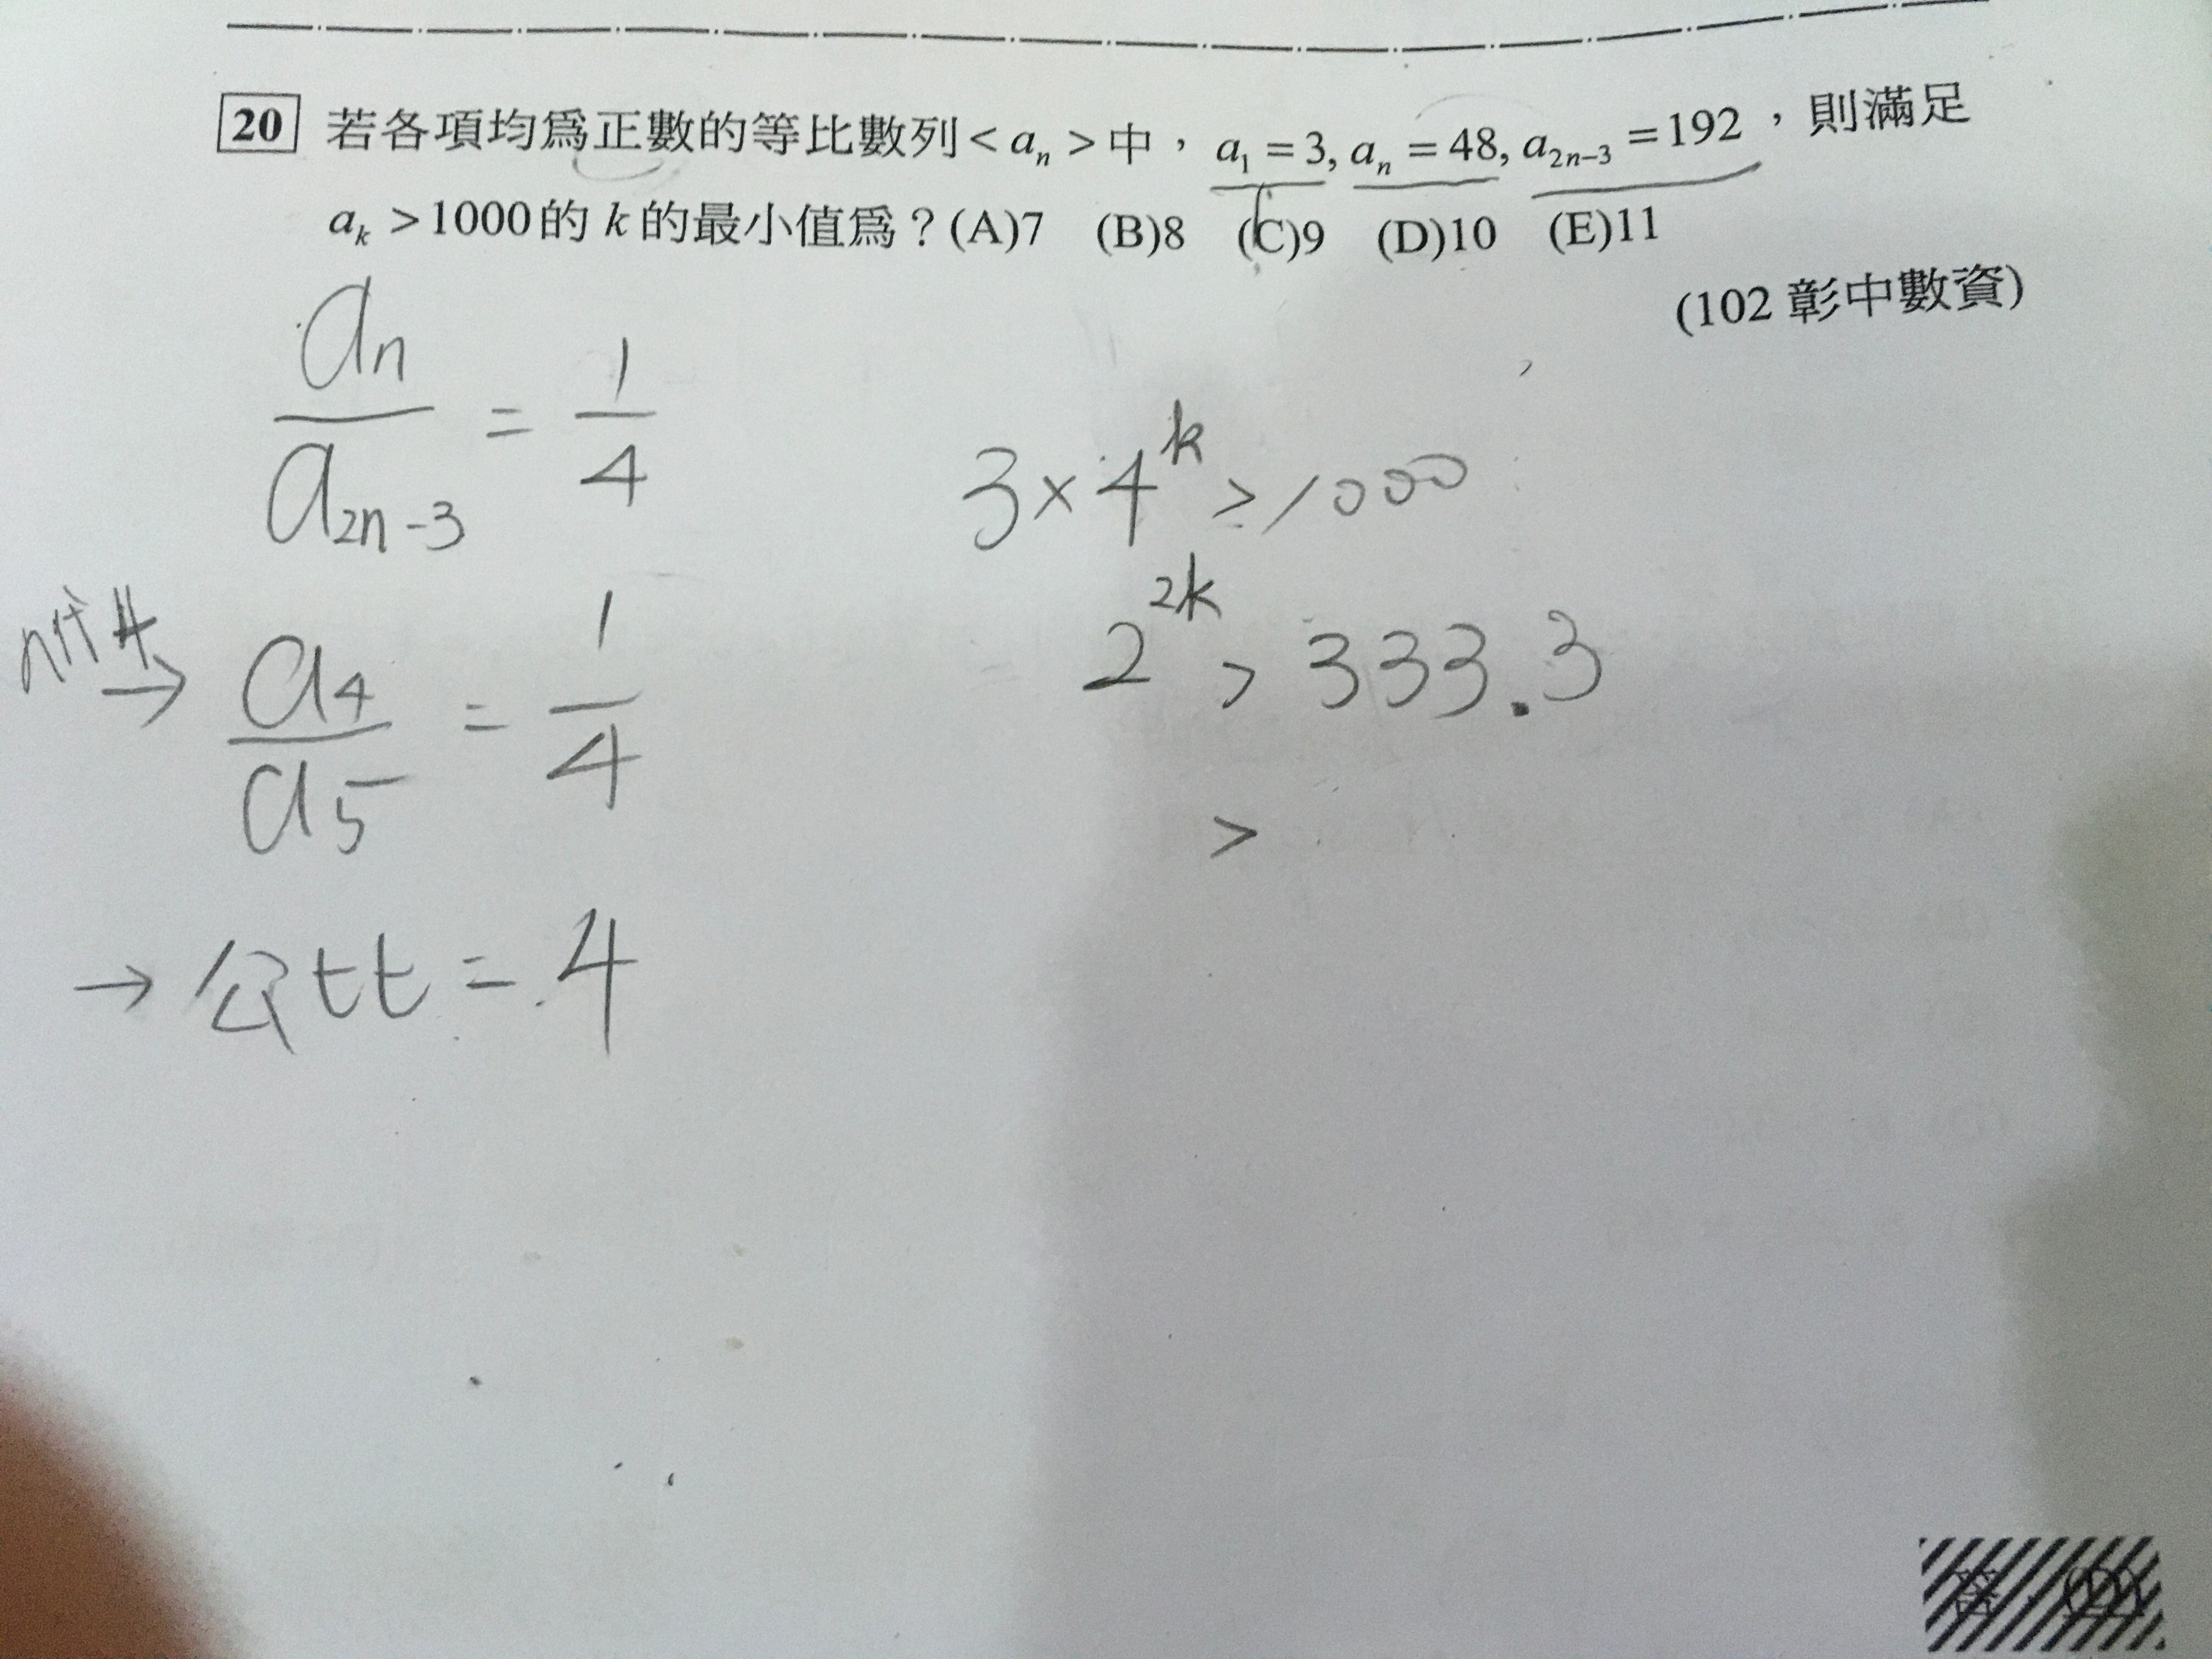 20 若各項均為正數的等比數列<aₙ>中，a₁=3, aₙ=48, a₂ₙ₋₃=192，則滿足
aₖ>1000的 k 的最小值為？(A)7 (B)8 (C)9 (D)10 (E)11
(102 彰中數資)
aₙ/a₂ₙ₋₃ = 1/4
n代4 → a₄/a₅ = 1/4
→ 公比 = 4
3×4ᵏ > 1000
2²ᵏ > 333.3
>
答